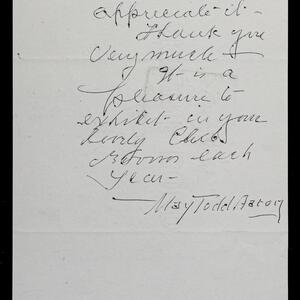 appreciate it -
Thank you
very much -
It is a
pleasure to
exhibit in your
lovely Club
Rooms each
year -
- May Todd Aaron